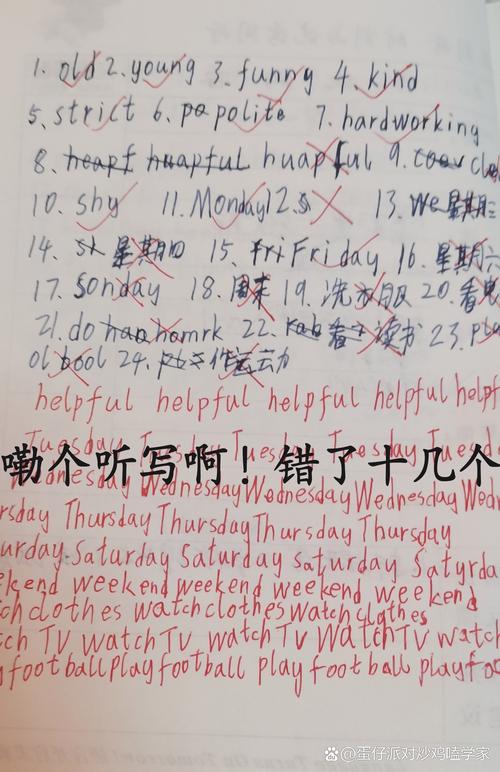 1. old 2. young 3. funny 4. kind
5. strict 6. po polite 7. hardworking
8. heapf huapful huapful 9.
10. shy 11. Monday 12. 13. We 星期三
14. 星期四 15. Fri Friday 16. 星期六
17. Sonday 18. 周末 19. 洗衣服 20. 看
21. do haa homrk 22. 看 读书 23.
ol bool 24. 作运动
helpful helpful helpful helpful helpf
Tuesday Tuesday Tuesday Tuesday Tuesd
嘞个听写啊！错了十几个
Wednesday Wednesday Wednesday Wednesday Wed
rsday Thursday Thursday Thursday Thursday
urday Saturday Saturday Saturday Satyrda
ekend weekend weekend weekend weekend
ch clothes watch clothes watch clothes
tch TV watch TV watch TV watch TV watch
y football play football play football play foo
百家号/蛋仔派对炒鸡嗑学家